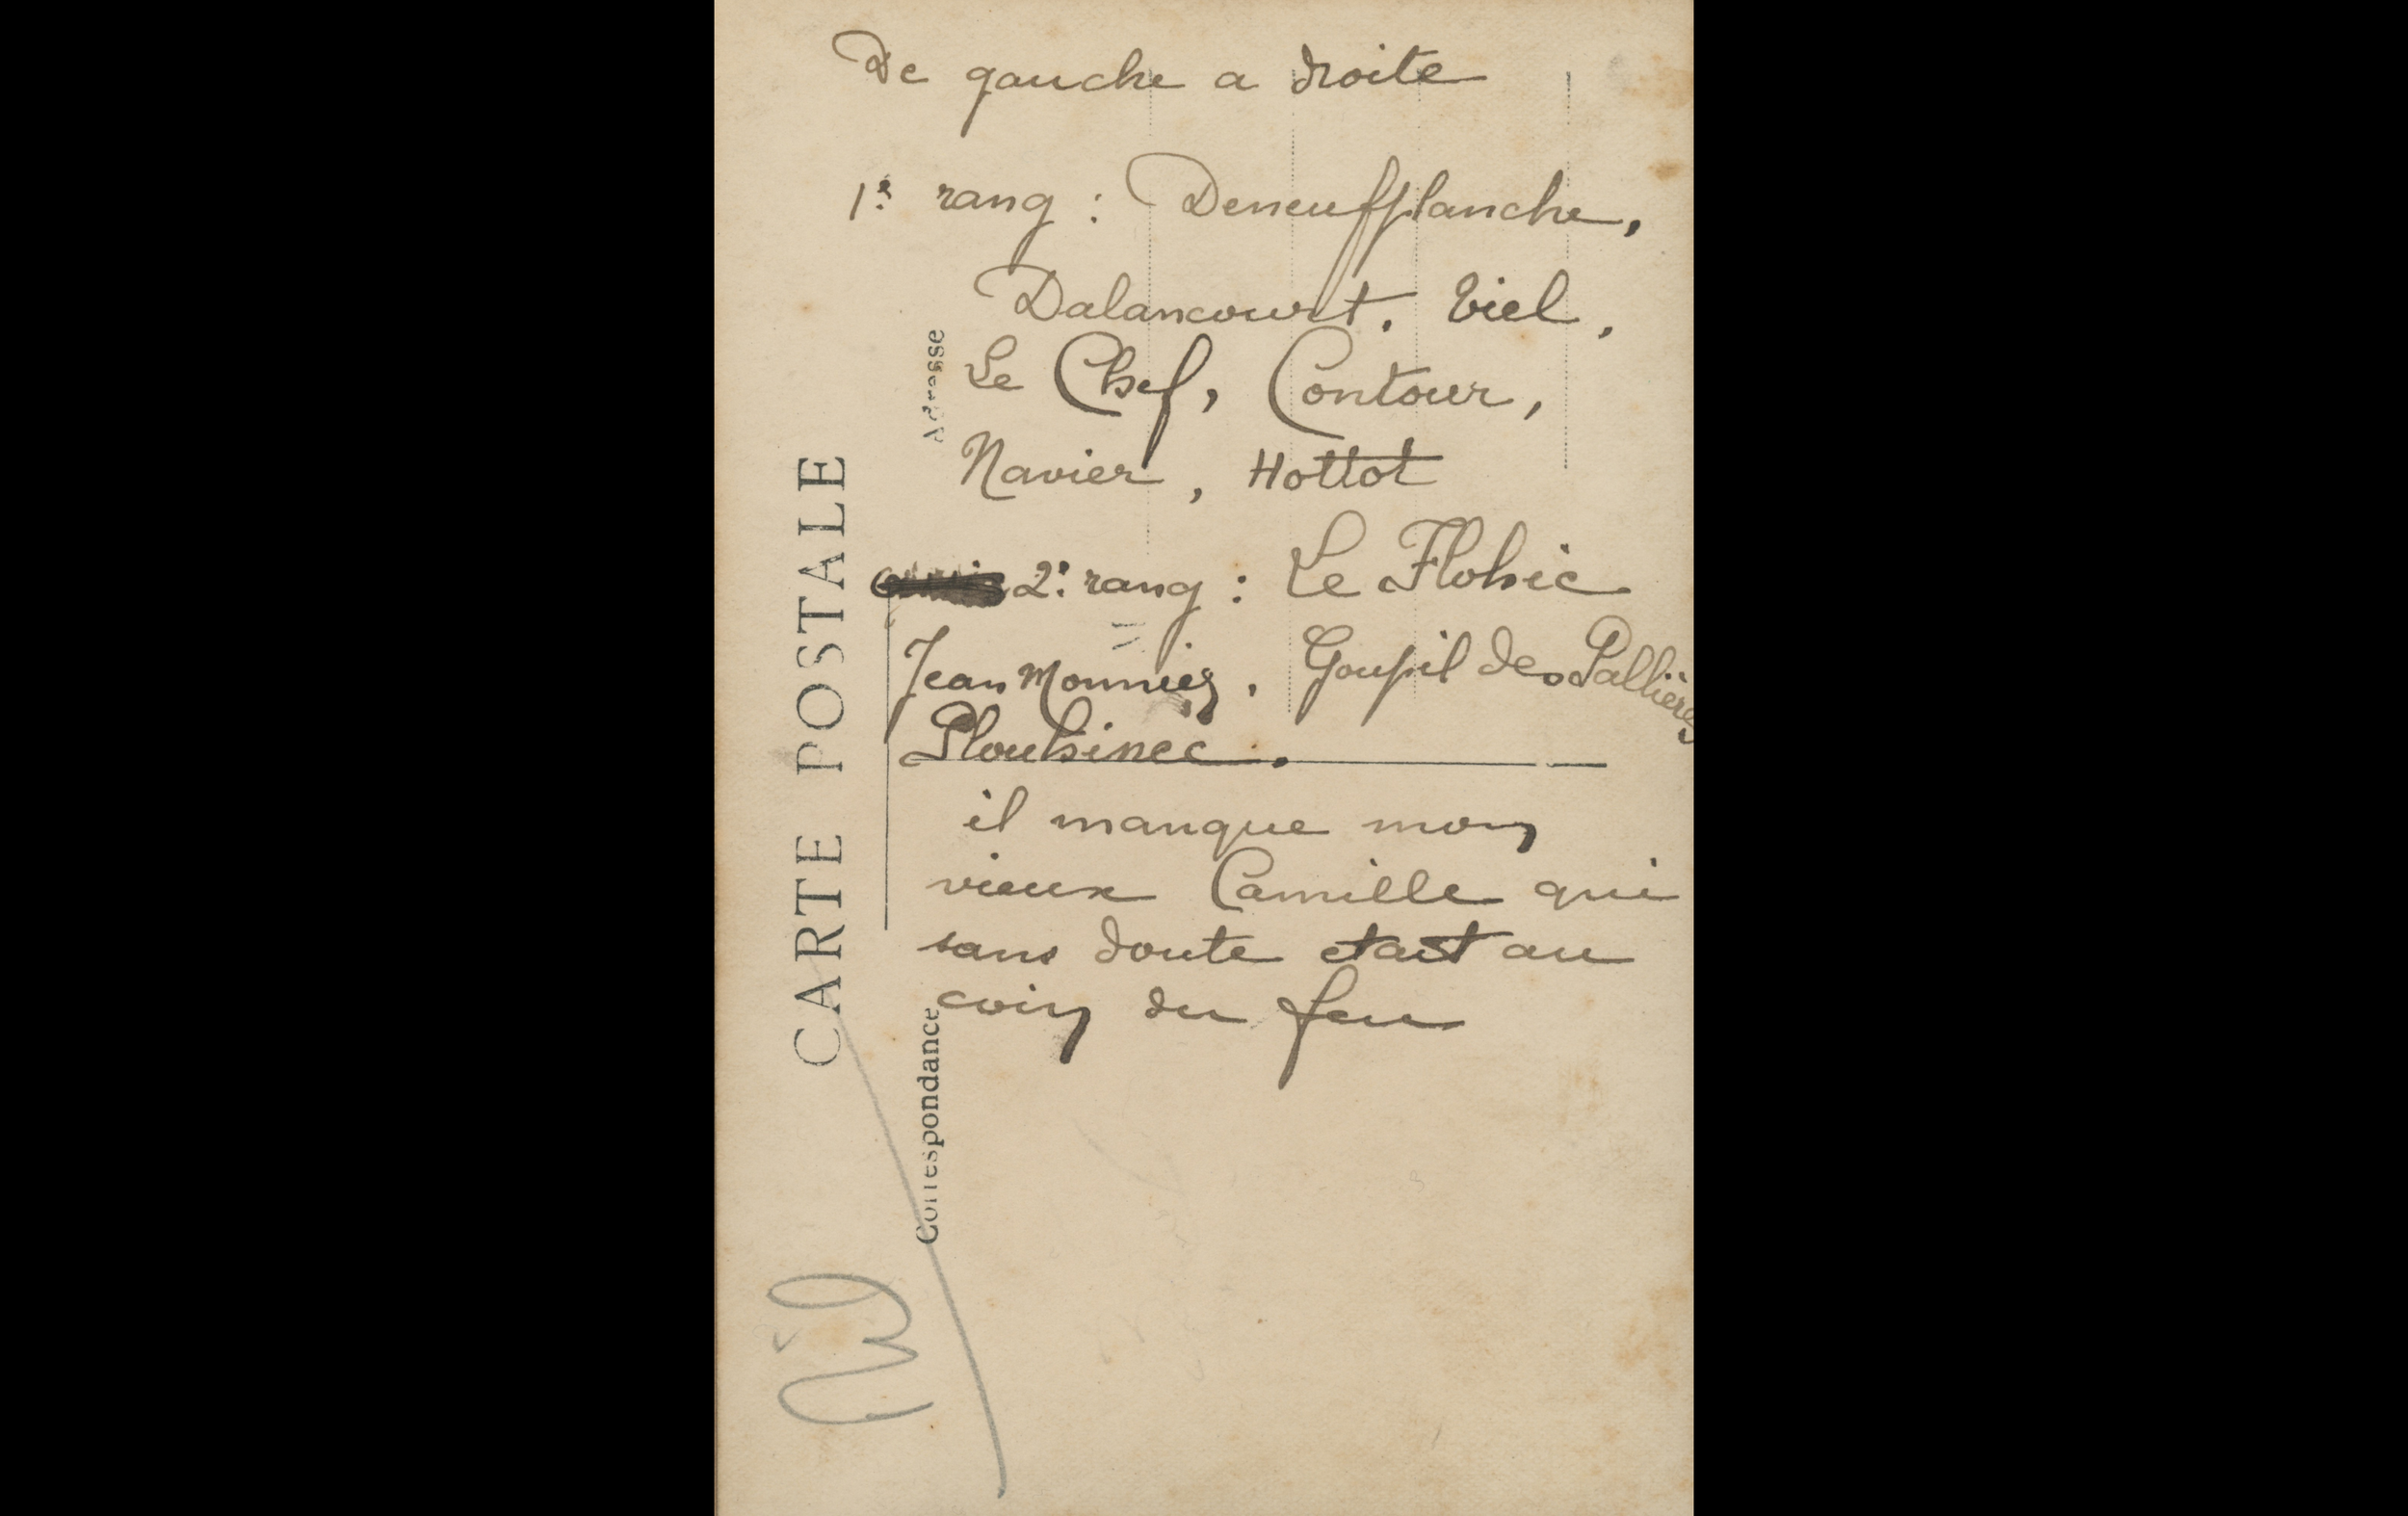 De gauche a droite
1e rang : Deneufplanche,
Dalancourt, Viel,
Le Chef, Contour,
Navier, Hottot
2e rang : Le Flohic
Jean Monnier, Goupil des Pallières
Plouhinec.
il manque mon
vieux Camille qui
sans doute etait au
coin du feu
CARTE POSTALE
Adresse
Correspondance